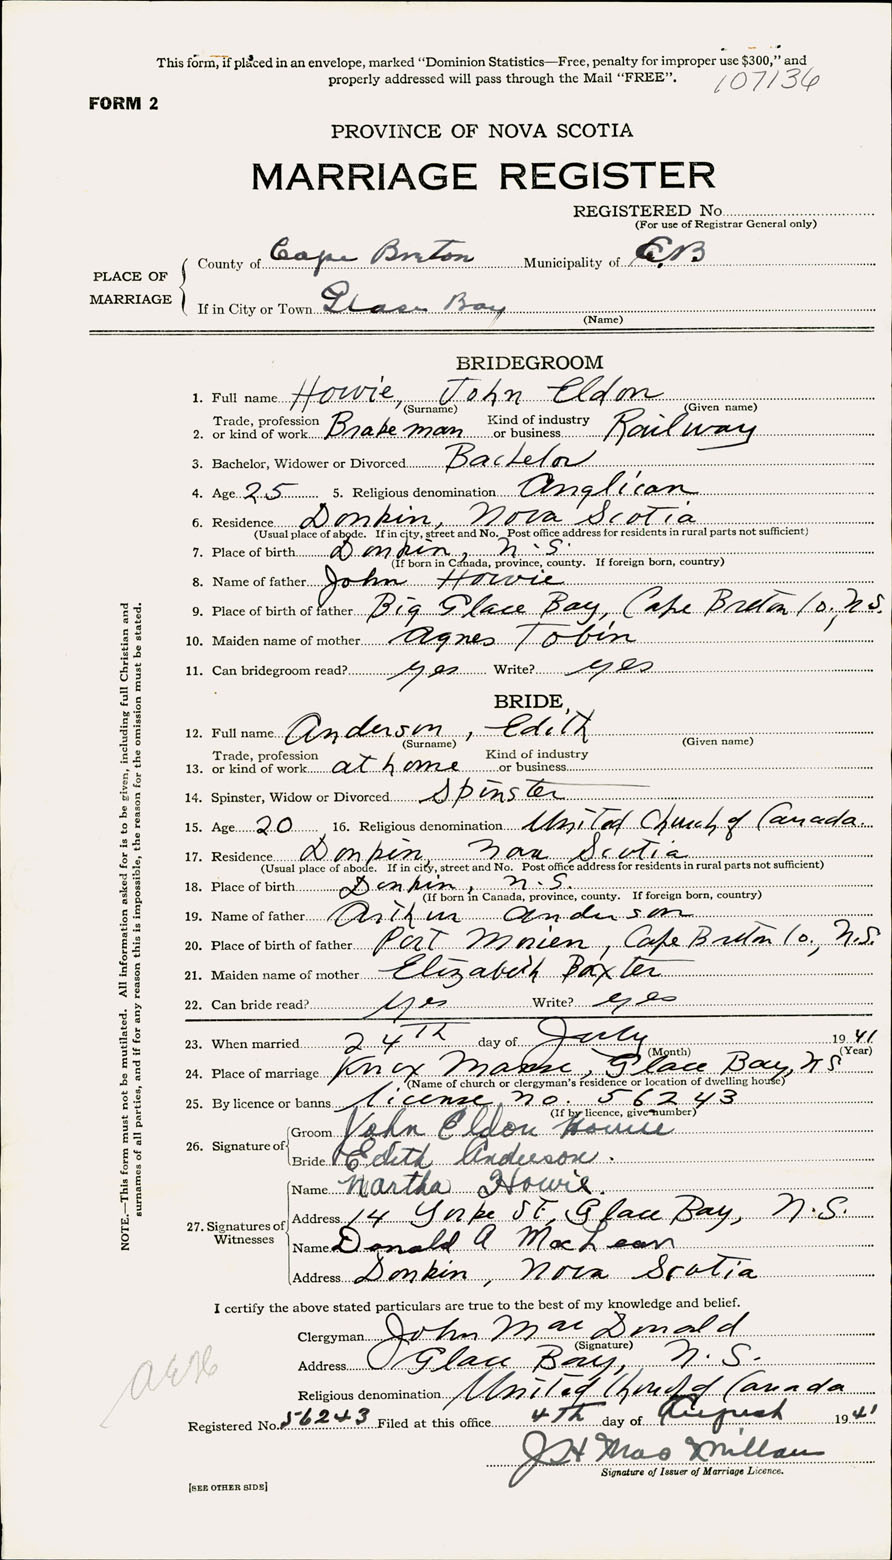 This form, if placed in an envelope, marked "Dominion Statistics—Free, penalty for improper use $300," and
properly addressed will pass through the Mail "FREE".
107136
FORM 2
PROVINCE OF NOVA SCOTIA
MARRIAGE REGISTER
REGISTERED No.
(For use of Registrar General only)
PLACE OF MARRIAGE
County of Cape Breton Municipality of C.B
If in City or Town Glace Bay
(Name)
BRIDEGROOM
1. Full name Howie, John Eldon
(Surname) (Given name)
2. Trade, profession or kind of work Brakeman Kind of industry or business Railway
3. Bachelor, Widower or Divorced Bachelor
4. Age 25 5. Religious denomination Anglican
6. Residence Donkin, Nova Scotia
(Usual place of abode. If in city, street and No. Post office address for residents in rural parts not sufficient)
7. Place of birth Donkin, N.S.
(If born in Canada, province, county. If foreign born, country)
8. Name of father John Howie
9. Place of birth of father Big Glace Bay, Cape Breton Co., N.S.
10. Maiden name of mother Agnes Tobin
11. Can bridegroom read? yes Write? yes
BRIDE
12. Full name Anderson, Edith
(Surname) (Given name)
13. Trade, profession or kind of work at home Kind of industry or business
14. Spinster, Widow or Divorced Spinster
15. Age 20 16. Religious denomination United Church of Canada
17. Residence Donkin, Nova Scotia
(Usual place of abode. If in city, street and No. Post office address for residents in rural parts not sufficient)
18. Place of birth Donkin, N.S.
(If born in Canada, province, county. If foreign born, country)
19. Name of father Arthur Anderson
20. Place of birth of father Port Morien, Cape Breton Co., N.S.
21. Maiden name of mother Elizabeth Baxter
22. Can bride read? yes Write? yes
23. When married 24th day of July 1941
(Month) (Year)
24. Place of marriage Knox Manse, Glace Bay, N.S
(Name of church or clergyman's residence or location of dwelling house)
25. By licence or banns License no. 56243
(If by licence, give number)
26. Signature of
Groom John Eldon Howie
Bride Edith Anderson.
27. Signatures of Witnesses
Name Martha Howie.
Address 14 Yorke St, Glace Bay, N.S.
Name Donald A MacLean
Address Donkin, Nova Scotia
I certify the above stated particulars are true to the best of my knowledge and belief.
Clergyman John MacDonald
(Signature)
Address Glace Bay, N.S.
Religious denomination United Church of Canada
Registered No. 56243 Filed at this office 4th day of August 1941
J H MacMillan
Signature of Issuer of Marriage Licence.
[SEE OTHER SIDE]
NOTE.—This form must not be mutilated. All information asked for is to be given, including full Christian and
surnames of all parties, and if for any reason this is impossible, the reason for the omission must be stated.